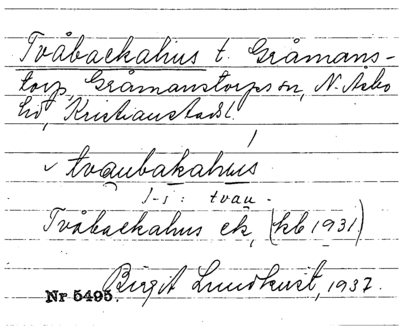 Tvåbackahus t. Gråmans-
torp, Gråmanstorps sn, N. Åsbo
hd, Kristianstads l.
✓ tvaubakahus
1-s: tvau-
Tvåbackahus ek, (kb 1931)
Birgit Lundkvist, 1937.
Nr 5495.